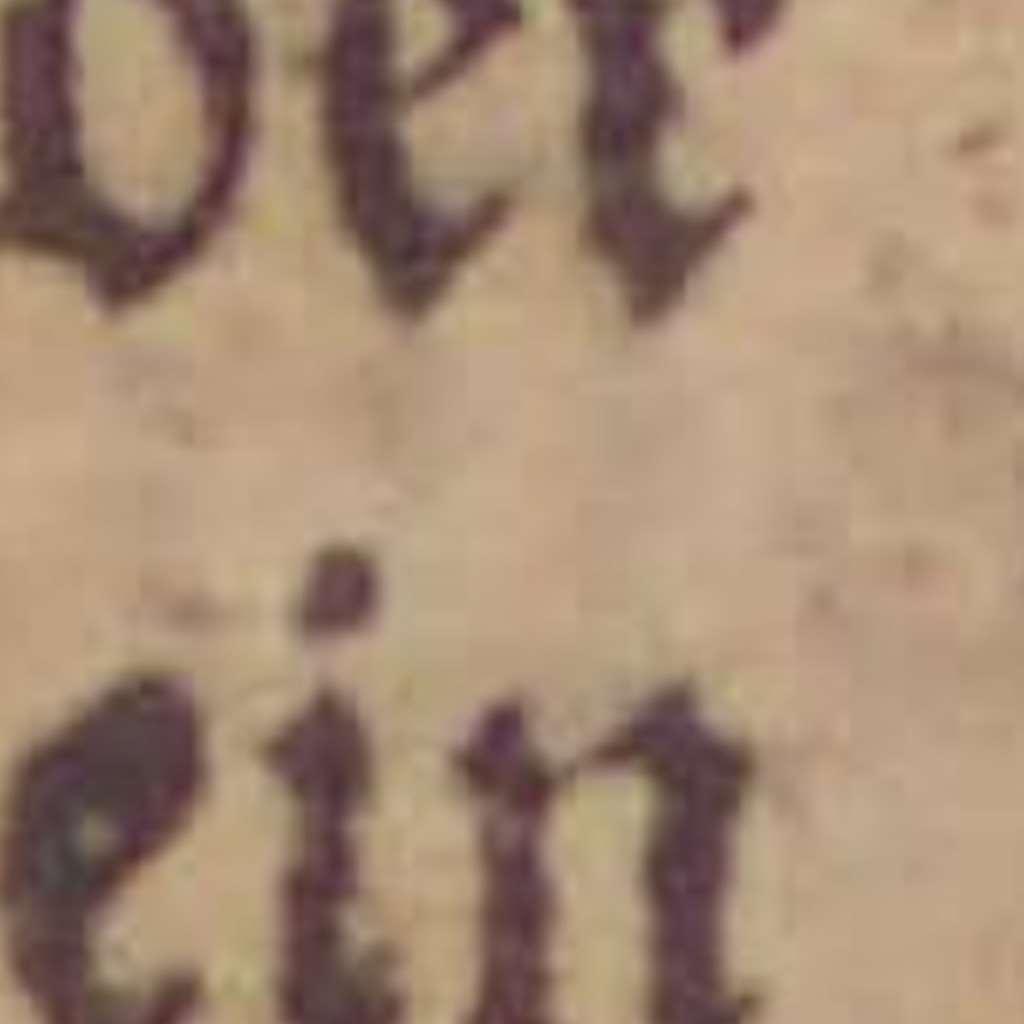 der
ein